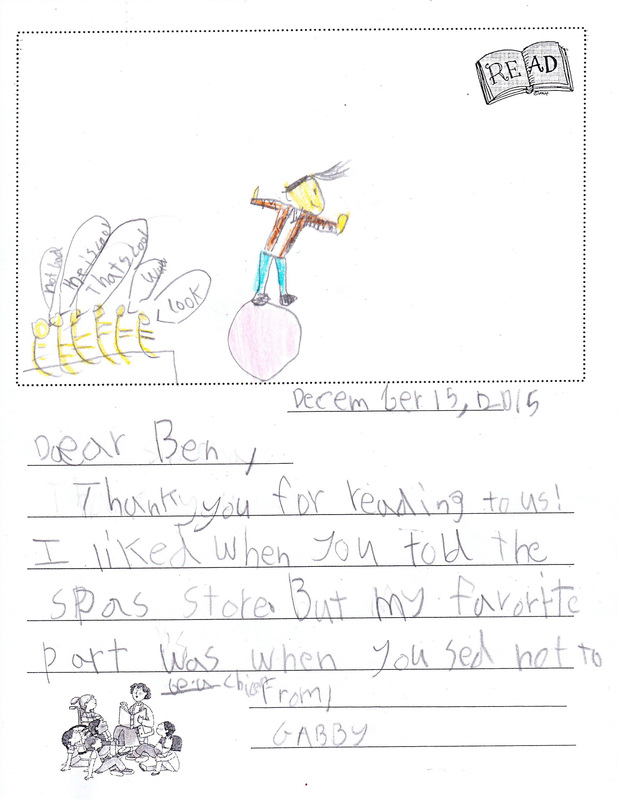 READ
he is cool
thats cool
LOOK
December 15, 2015
Dear Ben,
Thank you for reading to us!
I liked when you told the
spas store. But my favorite
part was when you sed not to
From,
GABBY